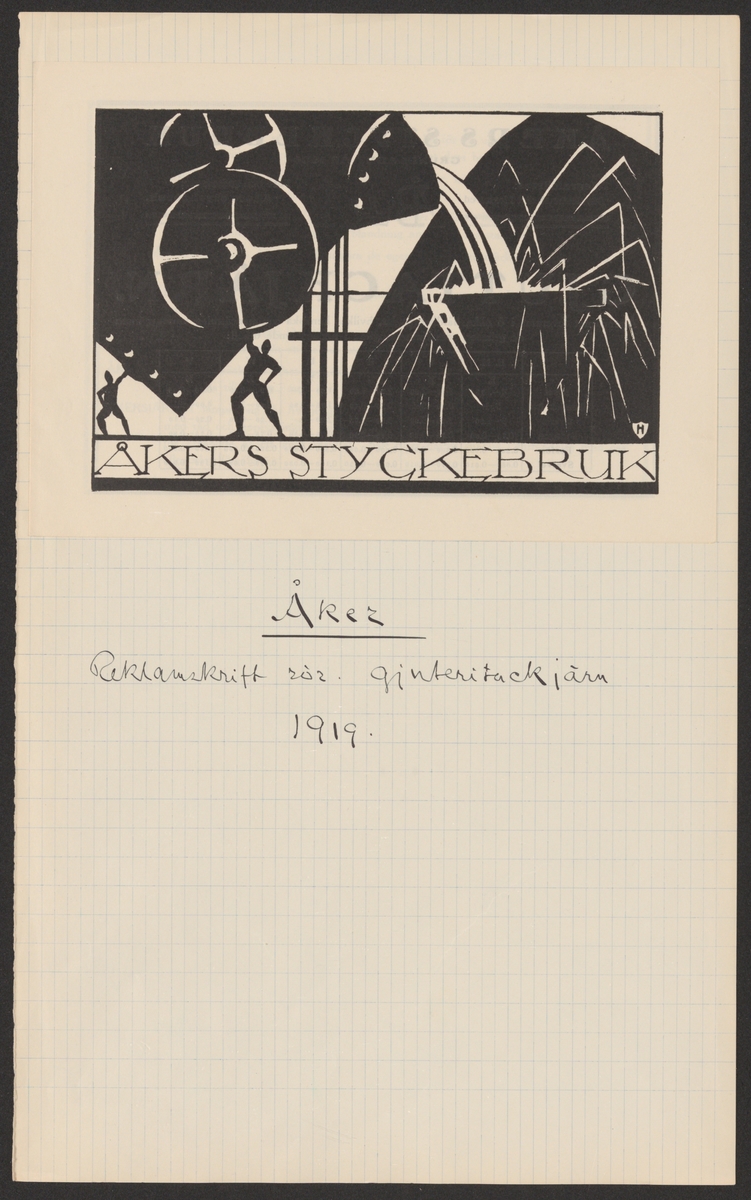 ÅKERS STYCKEBRUK
Åker
Reklamskrift rör. gjuteritackjärn
1919.